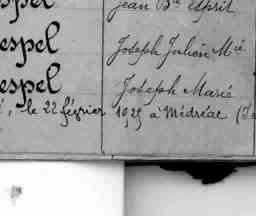 jean Bte esprit
espel
Joseph Julien Mie
espel
Joseph Marie
, le 22 février 1929 à Médréac (